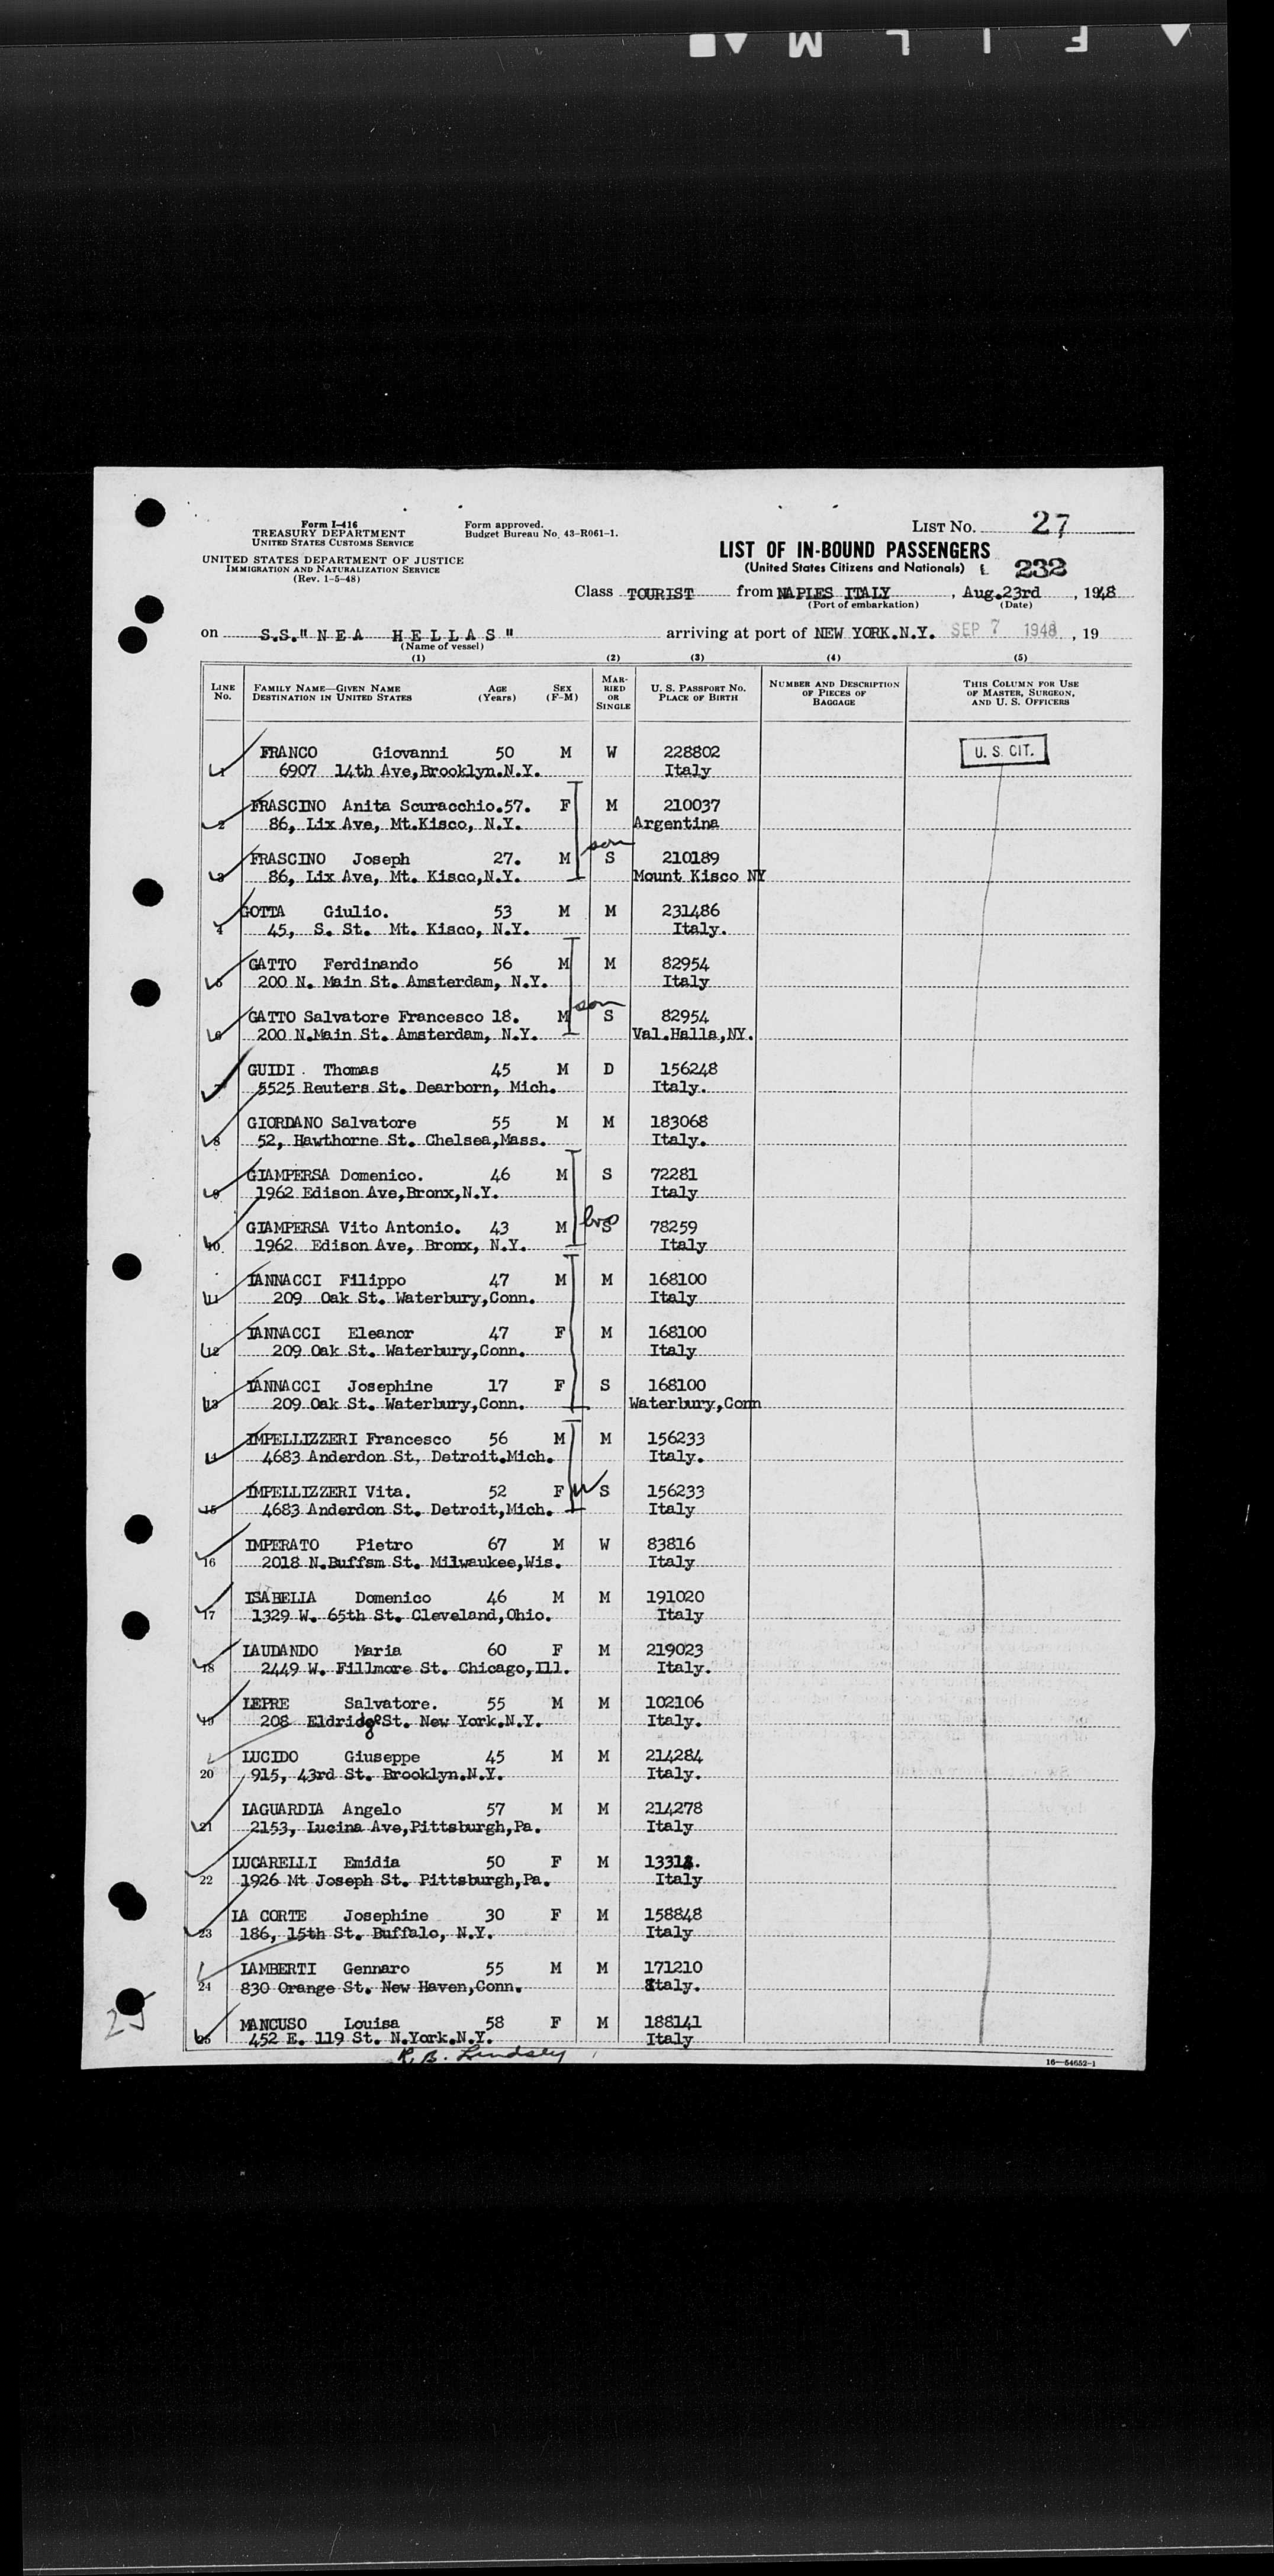 FILM
Form I-416
TREASURY DEPARTMENT
UNITED STATES CUSTOMS SERVICE
UNITED STATES DEPARTMENT OF JUSTICE
IMMIGRATION AND NATURALIZATION SERVICE
(Rev. 1-5-48)
Form approved.
Budget Bureau No. 43-R061-1.
LIST No. 27
LIST OF IN-BOUND PASSENGERS
(United States Citizens and Nationals) 232
Class TOURIST from NAPLES ITALY, Aug.23rd, 1948
(Port of embarkation) (Date)
on S.S." N E A H E L L A S " arriving at port of NEW YORK.N.Y. SEP 7 1948, 19
(Name of vessel)
(1) (2) (3) (4) (5)
LINE No. FAMILY NAME—GIVEN NAME DESTINATION IN UNITED STATES AGE (Years) SEX (F-M) MARRIED OR SINGLE U. S. PASSPORT No. PLACE OF BIRTH NUMBER AND DESCRIPTION OF PIECES OF BAGGAGE THIS COLUMN FOR USE OF MASTER, SURGEON, AND U. S. OFFICERS
FRANCO Giovanni 50 M W 228802 U. S. CIT.
1 6907 14th Ave,Brooklyn.N.Y. Italy
FRASCINO Anita Scuracchio.57. F M 210037
2 86, Lix Ave, Mt.Kisco, N.Y. Argentina
son
FRASCINO Joseph 27. M S 210189
3 86, Lix Ave, Mt. Kisco,N.Y. Mount Kisco NY
GOTTA Giulio. 53 M M 231486
4 45, S. St. Mt. Kisco, N.Y. Italy.
GATTO Ferdinando 56 M M 82954
5 200 N. Main St. Amsterdam, N.Y. Italy
son
GATTO Salvatore Francesco 18. M S 82954
6 200 N.Main St. Amsterdam, N.Y. Val.Halla,NY.
GUIDI. Thomas 45 M D 156248
7 5525 Reuters St. Dearborn, Mich. Italy.
GIORDANO Salvatore 55 M M 183068
8 52, Hawthorne St. Chelsea,Mass. Italy.
GIAMPERSA Domenico. 46 M S 72281
9 1962 Edison Ave,Bronx,N.Y. Italy
GIAMPERSA Vito Antonio. 43 M bro S 78259
10 1962 Edison Ave, Bronx, N.Y. Italy
IANNACCI Filippo 47 M M 168100
11 209 Oak St. Waterbury,Conn. Italy
IANNACCI Eleanor 47 F M 168100
12 209 Oak St. Waterbury,Conn. Italy
IANNACCI Josephine 17 F S 168100
13 209 Oak St. Waterbury,Conn. Waterbury,Conn
IMPELLIZZERI Francesco 56 M M 156233
14 4683 Anderdon St, Detroit.Mich. Italy.
IMPELLIZZERI Vita. 52 F W S 156233
15 4683 Anderdon St. Detroit,Mich. Italy
IMPERATO Pietro 67 M W 83816
16 2018 N.Buffsm St. Milwaukee,Wis. Italy
ISABELIA Domenico 46 M M 191020
17 1329 W. 65th St. Cleveland,Ohio. Italy
LAUDANDO Maria 60 F M 219023
18 2449 W. Fillmore St. Chicago,Ill. Italy.
LEPRE Salvatore. 55 M M 102106
19 208 Eldridge St. New York.N.Y. Italy.
LUCIDO Giuseppe 45 M M 214284
20 915, 43rd St. Brooklyn.N.Y. Italy.
LAGUARDIA Angelo 57 M M 214278
21 2153, Lucina Ave,Pittsburgh,Pa. Italy
LUCARELLI Emidia 50 F M
22 1926 Mt Joseph St. Pittsburgh,Pa. Italy
LA CORTE Josephine 30 F M 158848
23 186, 15th St. Buffalo, N.Y. Italy
LAMBERTI Gennaro 55 M M 171210
24 830 Orange St. New Haven,Conn. Italy.
25
MANCUSO Louisa 58 F M 188141
25 452 E. 119 St. N.York.N.Y. Italy
R. B. Lindsey
16—54652-1